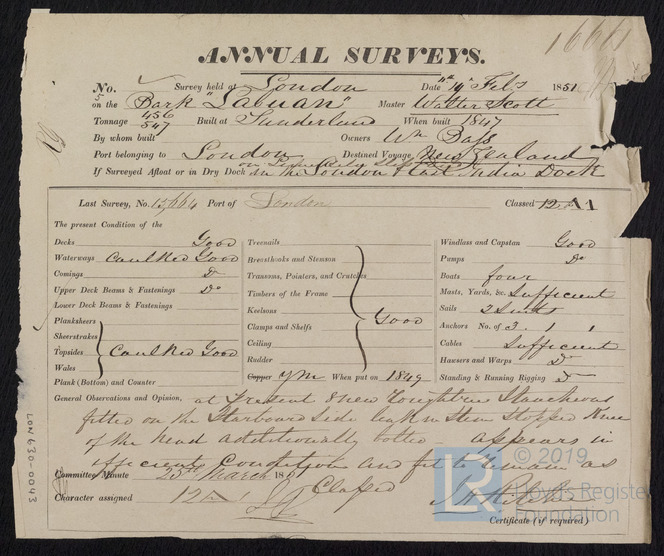 16661
ANNUAL SURVEYS.
No. Survey held at London Date 14 Feby 1851
5 on the Bark "Labuan" Master Walter Scott
Tonnage 456 547 Built at Sunderland When built 1847
By whom built Owners Wm Bass
Port belonging to London Destined Voyage New Zealand
If Surveyed Afloat or in Dry Dock in the London & East India Dock
Last Survey, No. 15,664 Port of London Classed 12 A 1
The present Condition of the
Decks Good
Waterways Caulked Good
Comings Do
Upper Deck Beams & Fastenings Do
Lower Deck Beams & Fastenings
Planksheers
Sheerstrakes
Topsides Caulked Good
Wales
Plank (Bottom) and Counter
Treenails
Breasthooks and Stemson
Transoms, Pointers, and Crutches
Timbers of the Frame
Keelsons Good
Clamps and Shelfs
Ceiling
Rudder
Copper YM When put on 1849
Windlass and Capstan Good
Pumps Do
Boats four
Masts, Yards, &c. Sufficient
Sails 2 Suits
Anchors No. of 3. 1 1
Cables Sufficient
Hawsers and Warps Do
Standing & Running Rigging Do
General Observations and Opinion, at Present 3 new Stanchions
fitted on the Starboard side leak in Stem Stopped Knee
of the head additionally bolted - appears in
efficient condition and fit to remain as
Committee Minute 25th March 1851 Classed
Character assigned 12 A 1
Certificate (if required)
LON 630-0043
© 2019
Lloyd's Register
Foundation
LR